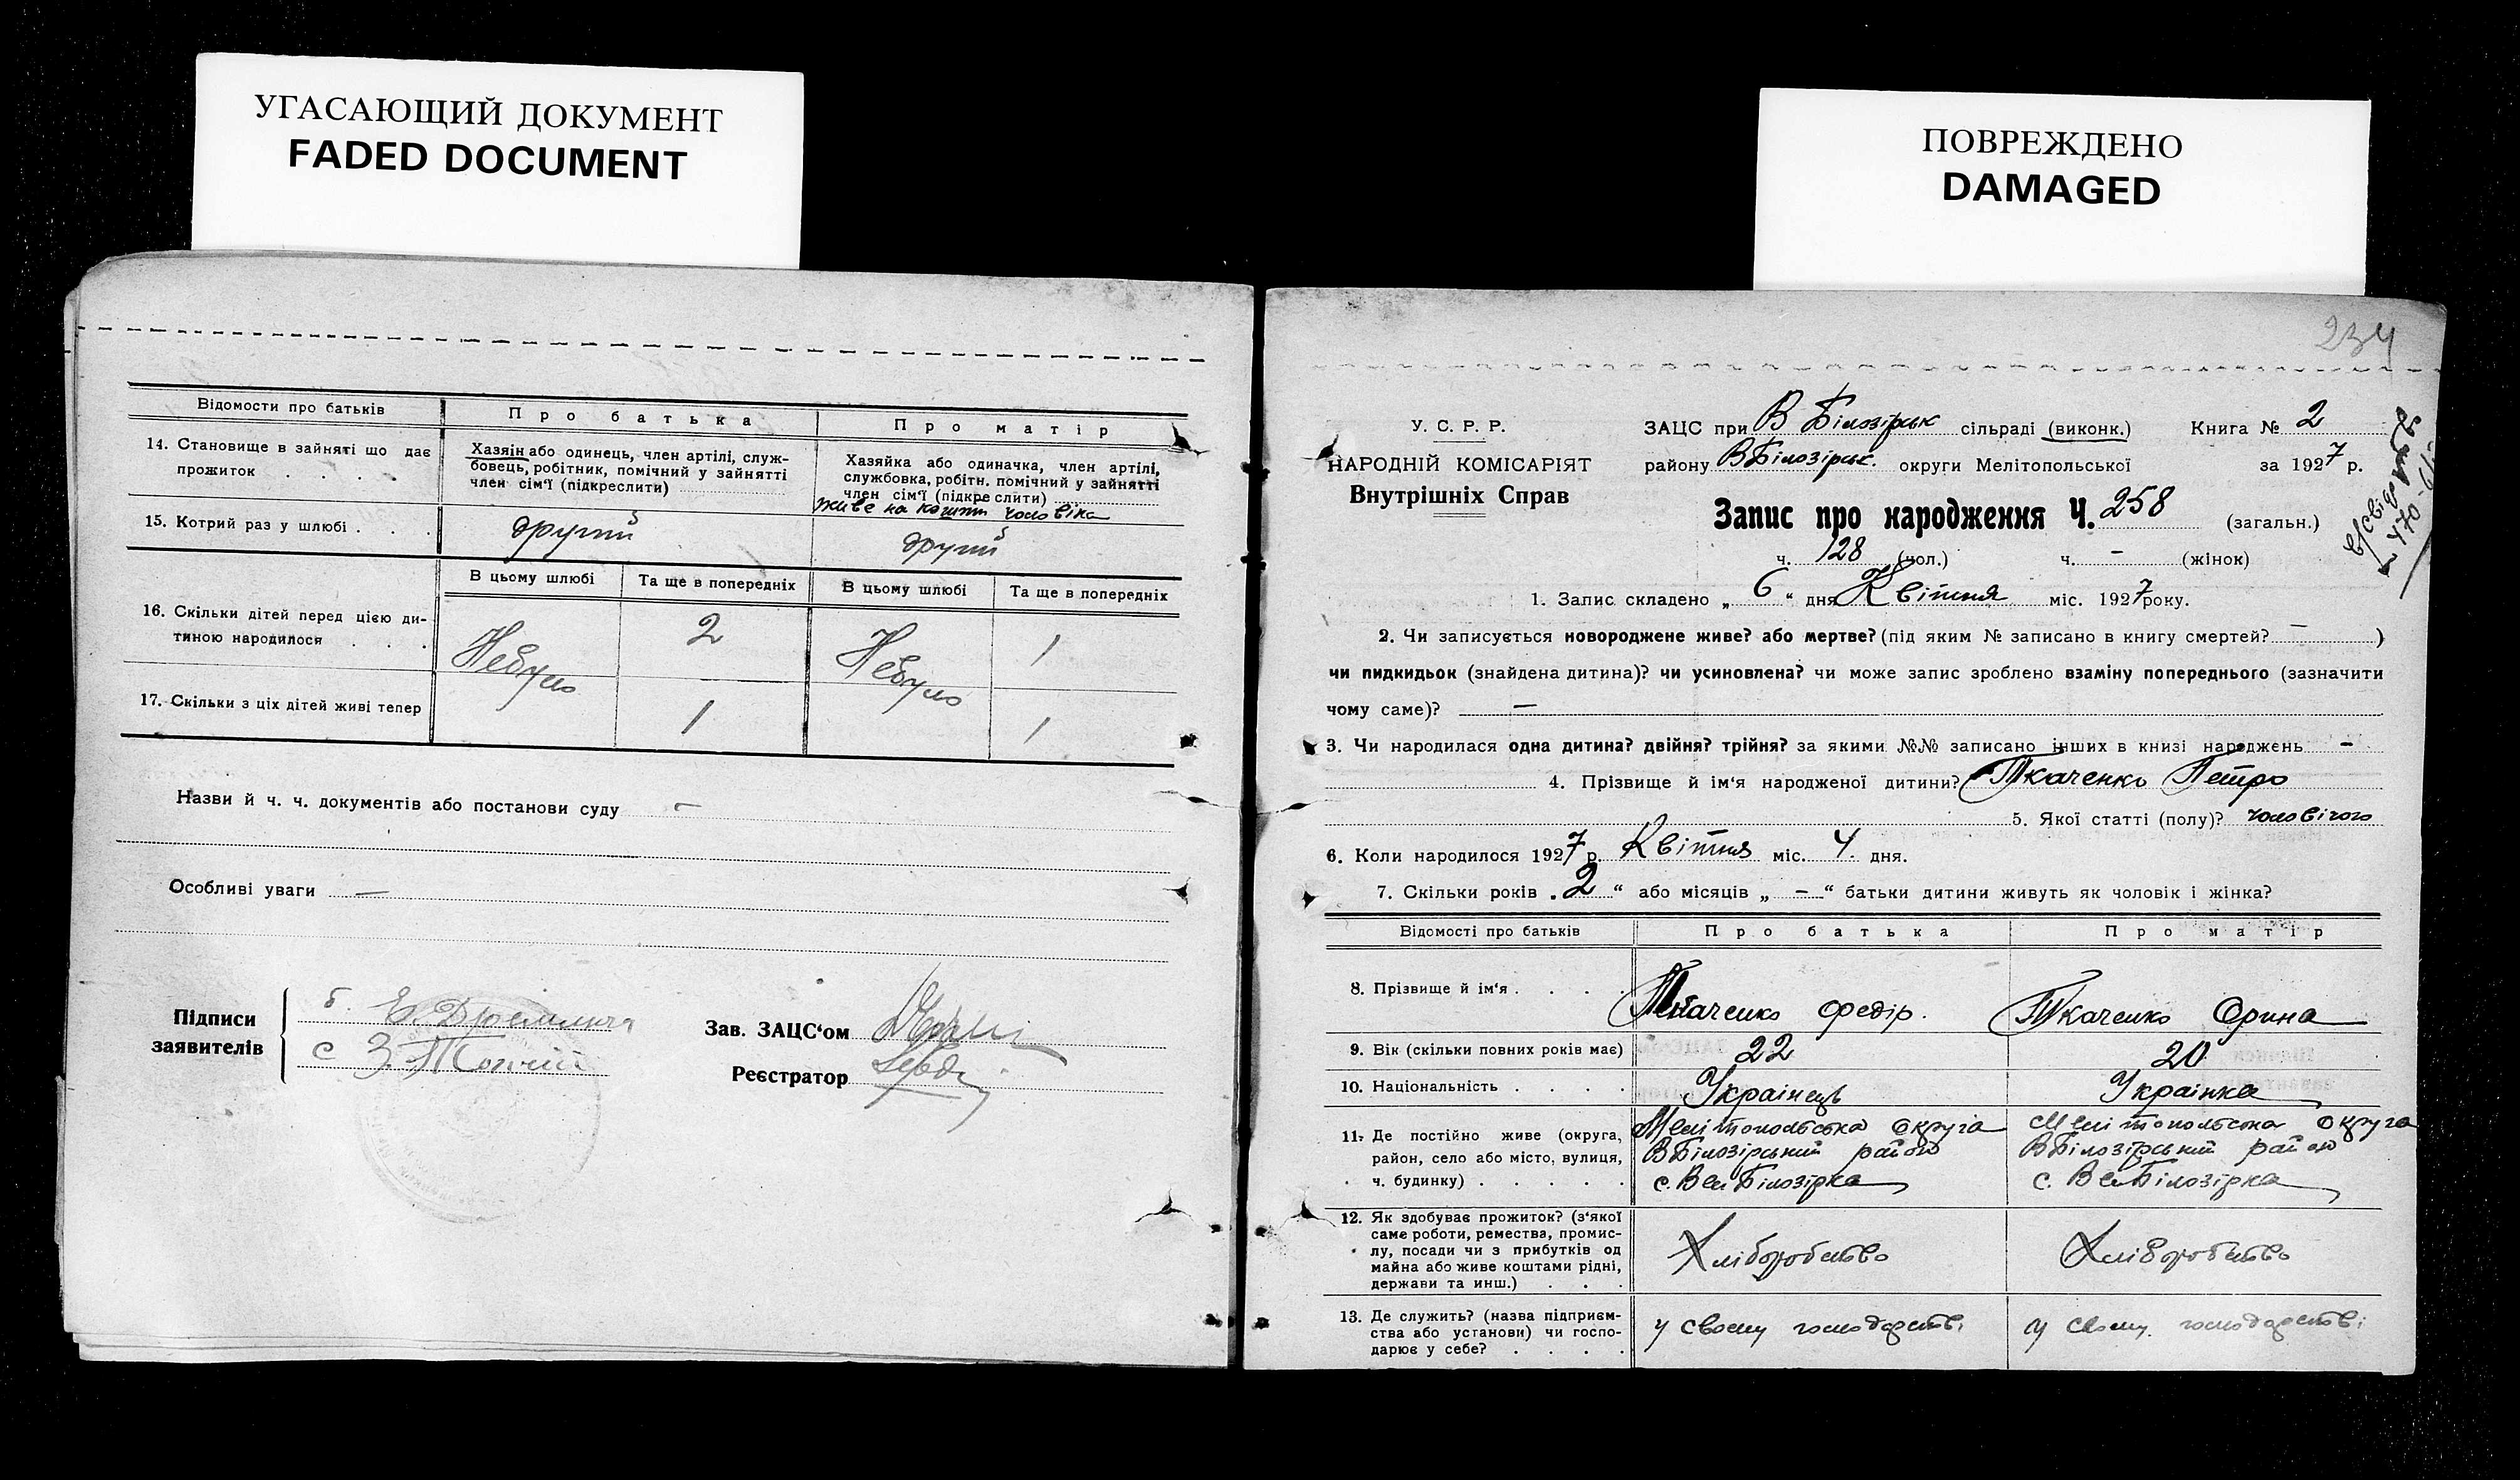 УГАСАЮЩИЙ ДОКУМЕНТ
FADED DOCUMENT
ПОВРЕЖДЕНО
DAMAGED
Відомости про батьків
Про батька
Про матір
14. Становище в зайняті що дає
прожиток . . . .
Хазяін або одинець, член артілі, служ-
бовець, робітник, помічний у зайнятті
член сім'ї (підкреслити)
Хазяйка або одиначка, член артілі,
службовка, робітн. помічний у зайнятті
член сім'ї (підкреслити)
живе на кошти чоловіка
15. Котрий раз у шлюбі . . .
другий
другий
В цьому шлюбі
Та ще в попередніх
В цьому шлюбі
Та ще в попередніх
16. Скільки дітей перед цією ди-
тиною народилося . . .
Небуло
2
Небуло
1
17. Скільки з ціх дітей живі тепер
1
1
Назви й ч. ч. документів або постанови суду —
Особливі уваги —
Підписи
заявителів
Зав. ЗАЦС'ом
Реєстратор
234
У. С. Р. Р.
НАРОДНІЙ КОМІСАРІЯТ
Внутрішніх Справ
ЗАЦС при В Білозірськ сільраді (виконк.) Книга № 2
району ВБілозірськ. округи Мелітопольської за 1927 р.
Запис про народження Ч. 258 (загальн.)
ч. 128 (чол.) ч. — (жінок)
1. Запис складено „ 6 “ дня Квітня міс. 1927 року.
2. Чи записується новороджене живе? або мертве? (під яким № записано в книгу смертей? — )
чи пидкидьок (знайдена дитина)? чи усиновлена? чи може запис зроблено взаміну попереднього (зазначити
чому саме)? —
3. Чи народилася одна дитина? двійня? трійня? за якими №№ записано інших в книзі народжень —
4. Прізвище й ім'я народженої дитини? Ткаченко Петро
5. Якої статті (полу)? чоловічого
6. Коли народилося 1927 р. Квітня міс. 4. дня.
7. Скільки років „ 2 “ або місяців „ — “ батьки дитини живуть як чоловік і жінка?
Відомості про батьків
Про батька
Про матір
8. Прізвище й ім'я . . . .
Ткаченко Федір.
Ткаченко Орина
9. Вік (скільки повних років має)
22
20
10. Національність . . . .
Українець
Українка
11. Де постійно живе (округа,
район, село або місто, вулиця,
ч. будинку) . . . . .
Мелітопольська округа
ВБілозірський район
с. Вел Білозірка
Мелітопольська округа
ВБілозірський район
с. Вел Білозірка
12. Як здобуває прожиток? (з'якої
саме роботи, ремества, промис-
лу, посади чи з прибутків од
майна або живе коштами рідні,
держави та инш.) . . .
Хліборобство
Хліборобство
13. Де служить? (назва підприєм-
ства або установи) чи госпо-
дарює у себе? . . . .
у своєму господарстві
у своєму господарстві